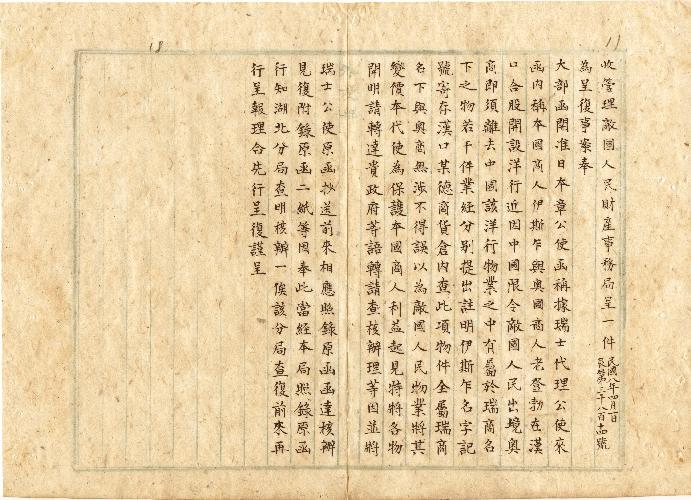 17
18
收管理敵國人民財產事務局呈一件
民國八年四月 日
為呈復事案奉
大部函開准日本章公使函稱據瑞士代理公使來
函內稱本國商人伊斯乍與奧國商人老登勃在漢
口合股開設洋行近因中國限令敵國人民出境奧
商即須離去中國該洋行物業之中有屬於瑞商名
下之物若干件業經分別提出註明伊斯乍名字記
號寄存漢口某德商貨倉內查此項物件全屬瑞商
名下與奧商無涉不得誤以為敵國人民物業將其
變價本代使為保護本國商人利益起見特將各物
開明請轉達貴政府等語轉請查核辦理等因並將
瑞士公使原函抄送前來相應照錄原函函達核辦
見復附錄原函二紙等因奉此當經本局照錄原函
行知湖北分局查明核辦一俟該分局查復前來再
行呈報理合先行呈復謹呈